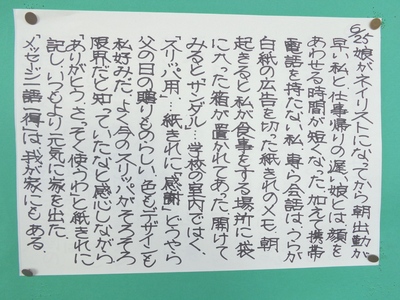 6/25 娘がネイリストになってから朝出勤が
早い私と仕事帰りの遅い娘とは顔を
あわせる時間が短くなった。加えて携帯
電話を持たない私、専ら会話は、うらが
白紙の広告を切った紙きれのメモ、朝
起きると私が食事をする場所に袋
に入った箱が置かれてあった。開けて
みるとサンダル…学校の室内ではく、
「スリッパ用」…紙きれに「感謝」どうやら
父の日の贈りものらしい。色もデザインも
私好みだ。よく今のスリッパがそろそろ
限界だと知っていたなと感心しながら
「ありがとう、さっそく使うわ」と紙きれに
記し、いつもより元気に家を出た。
「メッセージ語一得」は、我が家にもある。